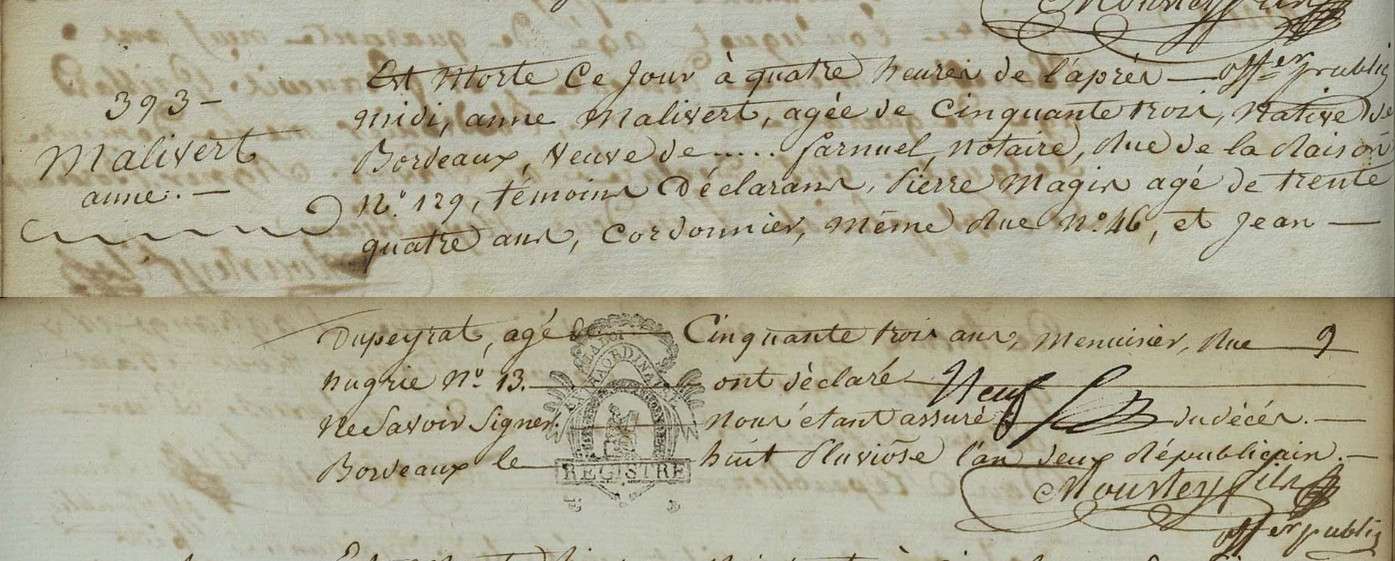 Moustey fils
offer public
393 -
Malivert
anne. -
Est Morte Ce Jour à quatre heures de l'après -
midi, anne Malivert, agée de Cinquante trois, Native de
Bordeaux, Veuve de ..... Garnuel, Notaire, Rue de la Raison
N.o 129, témoins Déclarans, Pierre Magis agé de trente
quatre ans, Cordonnier, Même Rue N.o 46, et Jean -
Dupeyrat, agé de Cinquante trois ans, Menuisier, Rue 9
hugrie N.o 13. ont déclaré
Ne Savoir Signer. Nous étant assuré du décés. -
Bordeaux le huit Pluviôse l'an deux Républicain. -
LA LOI
EXTRAORDINAIRE
REGISTRE
Moustey fils
offer public